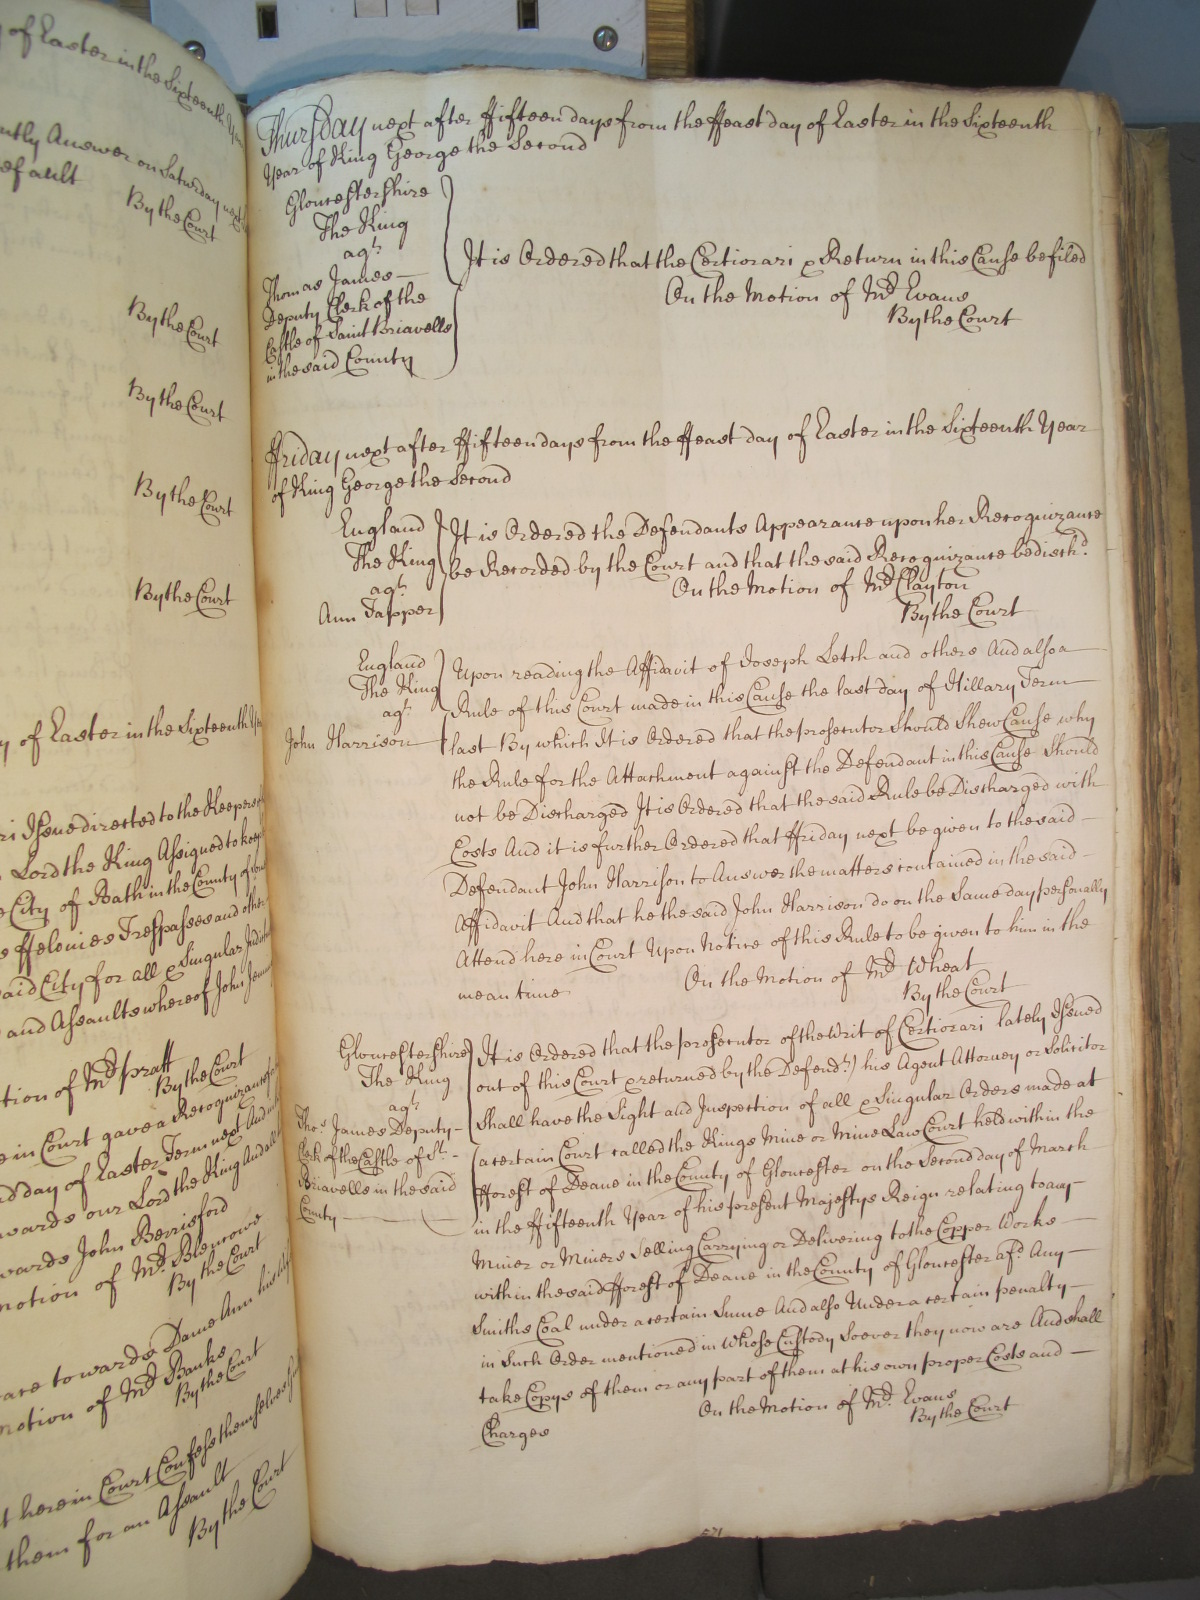 of Easter in the Sixteenth
ntly Answer on Saturday next
efault
By the Court
By the Court
By the Court
By the Court
By the Court
y of Easter in the Sixteenth
ri Issue directed to the Keepers
Lord the King Assigned to keep
City of Bath in the County of
ffelonies Trespasses and other
aid City for all & Singular
and Assaults whereof John
tion of Mr. Pratt
By the Court
e in Court gave a Recognizance
day of Easter Term next And
wards our Lord the King And
wards John Berrisford
motion of Mr. Blencowe
By the Court
are towards Dame Ann his
motion of Mr. Banks
By the Court
t here in Court Confess themselves
them for an Assault
By the Court
Thursday next after ffifteen days from the ffeast day of Easter in the Sixteenth
Year of King George the Second
Gloucestershire
The King
agt.
Thomas James
Deputy Clerk of the
Castle of Saint Briavells
in the said County
It is Ordered that the Certiorari & Return in this Cause be filed
On the Motion of Mr. Evans
By the Court
ffriday next after ffifteen days from the ffeast day of Easter in the Sixteenth Year
of King George the Second
England
The King
agt.
Ann Tapper
It is Ordered the Defendants Appearance upon her Recognizance
be Recorded by the Court and that the said Recognizance be disch.d
On the Motion of Mr. Clayton
By the Court
England
The King
agt.
John Harrison
Upon reading the Affidavit of Joseph Letch and others And also a
Rule of this Court made in this Cause the last day of Hillary Term
last By which It is Ordered that the prosecutor Should Shew Cause why
the Rule for the Attachment against the Defendant in this Cause Should
not be Discharged It is Ordered that the said Rule be Discharged with
Costs And it is further Ordered that ffriday next be given to the said
Defendant John Harrison to Answer the matters contained in the said
Affidavit And that he the said John Harrison do on the Same day personally
Attend here in Court Upon Notice of this Rule to be given to him in the
mean time
On the Motion of Mr. Wheat
By the Court
Gloucestershire
The King
agt.
Thos. James Deputy
Clerk of the Castle of St.
Briavells in the said
County
It is Ordered that the prosecutor of the Writ of Certiorari lately Issued
out of this Court & returned by the Defend.t) his Agent Attorney or Solicitor
Shall have the Sight and Inspection of all & Singular Orders made at
a certain Court called the Kings Mine or Mine Law Court held within the
fforest of Deane in the County of Gloucester on the Second day of March
in the ffifteenth Year of his present Majestys Reign relating to any
Miner or Miners Selling Carrying or Delivering to the Copper Works
within the said fforest of Deane in the County of Gloucester afd. Any
Smiths Coal under a certain Sume And also Under a certain penalty
in Such Order mentioned in Whose Custody Soever they now are And shall
take Copys of them or any part of them at his own proper Costs and
Charges
On the Motion of Mr. Evans
By the Court